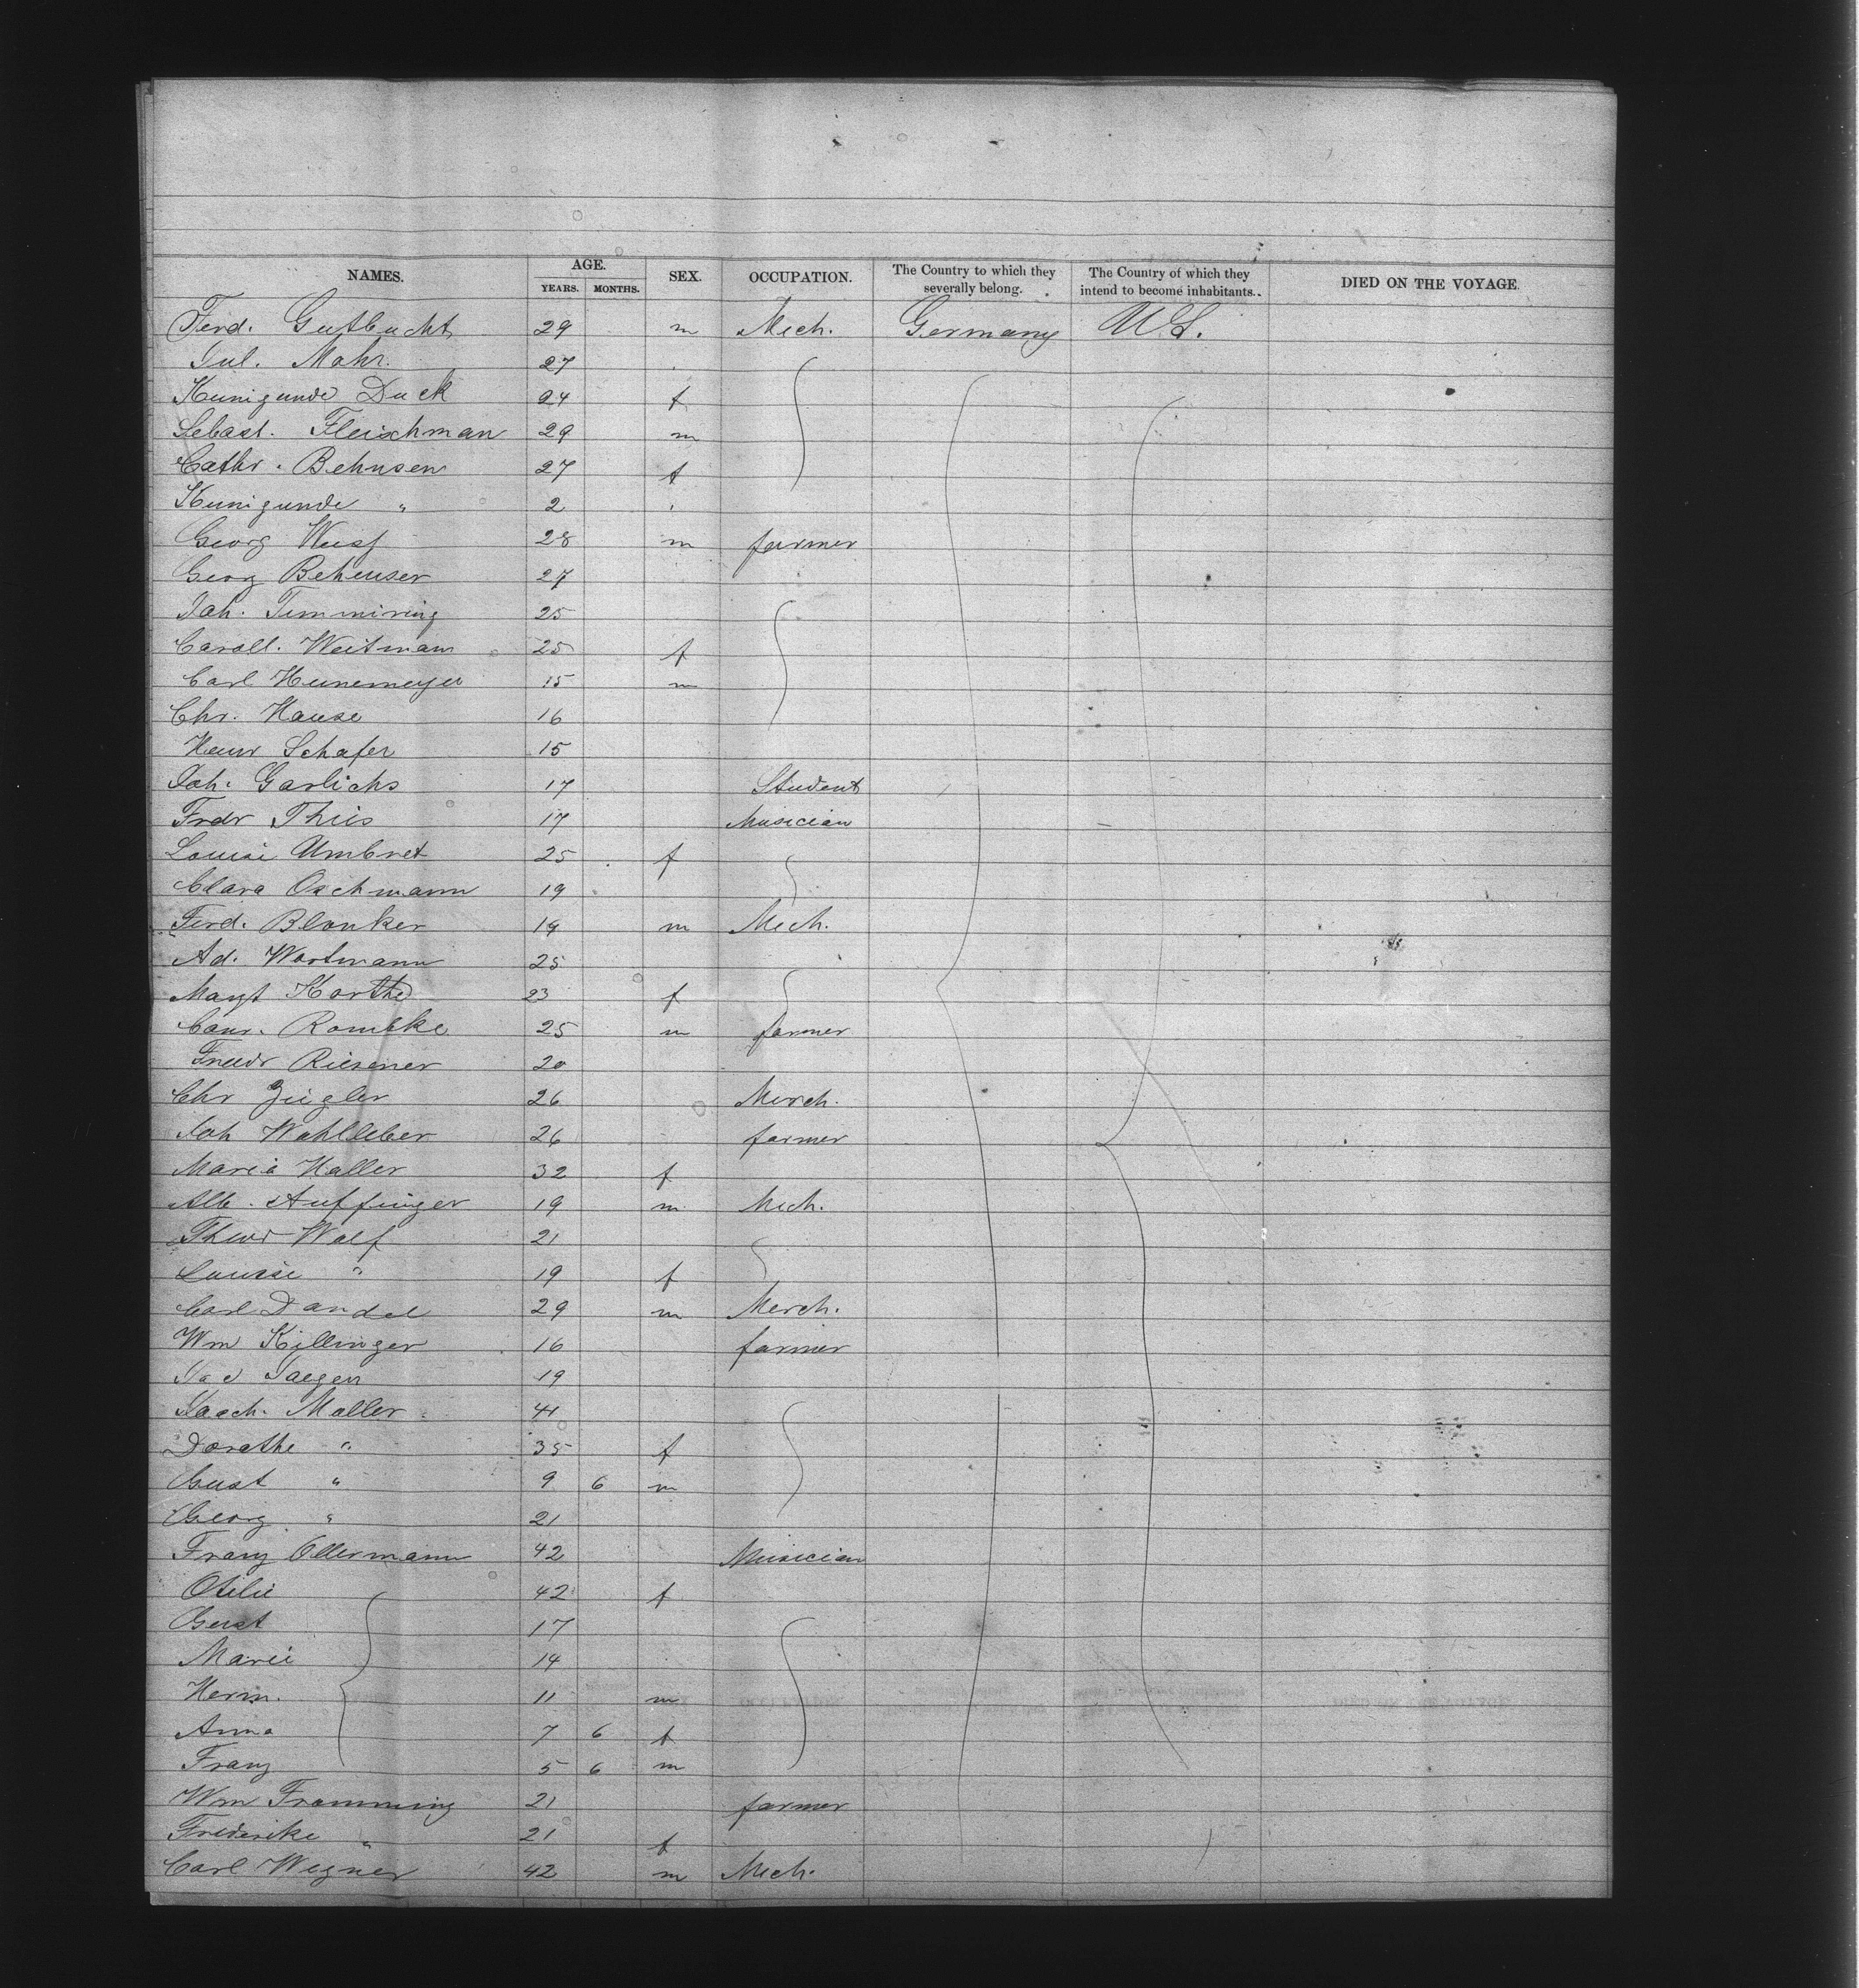 NAMES. AGE. YEARS. MONTHS. SEX. OCCUPATION. The Country to which they severally belong. The Country of which they intend to become inhabitants. DIED ON THE VOYAGE.
Ferd. Gutbucht 29 m Mech. Germany U.S.
Jul. Mohr. 27
Kunigunde Duck 24 f
Sebast. Fleischman 29 m
Cathr. Behnsen 27 f
Kunigunde " 2
Georg Weisf 28 m farmer
Georg Behenser 27
Joh. Timmiring 25
Caroll. Weitmann 25 f
Carl Heinemeyer 15 m
Chr. Hause 16
Heinr Schafer 15
Joh. Garlichs 17 Student
Fredr Thies 17 Musician
Louise Umbret 25 f
Clara Oschmann 19
Ferd. Blonker 19 m Mech.
Ad. Wortmann 25
Margt Korthe 23 f
Conr. Rombke 25 m farmer
Friedr Riesener 20
Chr Ziegler 26 Merch.
Joh Wahlleber 26 farmer
Maria Haller 32 f
Alb. Auffinger 19 m Mech.
Theod Wolf 21
Louise " 19 f
Carl Dandel 29 m Merch.
Wm Killinger 16 farmer
Jaegen 19
Joach. Moller 41
Dorothe " 35 f
Gust " 9 6 m
Georg " 21
Franz Ollermann 42 Musician
Otilie 42 f
Gust 17
Marie 14
Herm. 11 m
Anna 7 6 f
Franz 5 6 m
Wm Fromming 21 farmer
Frederike " 21 f
Carl Wegner 42 m Mech.